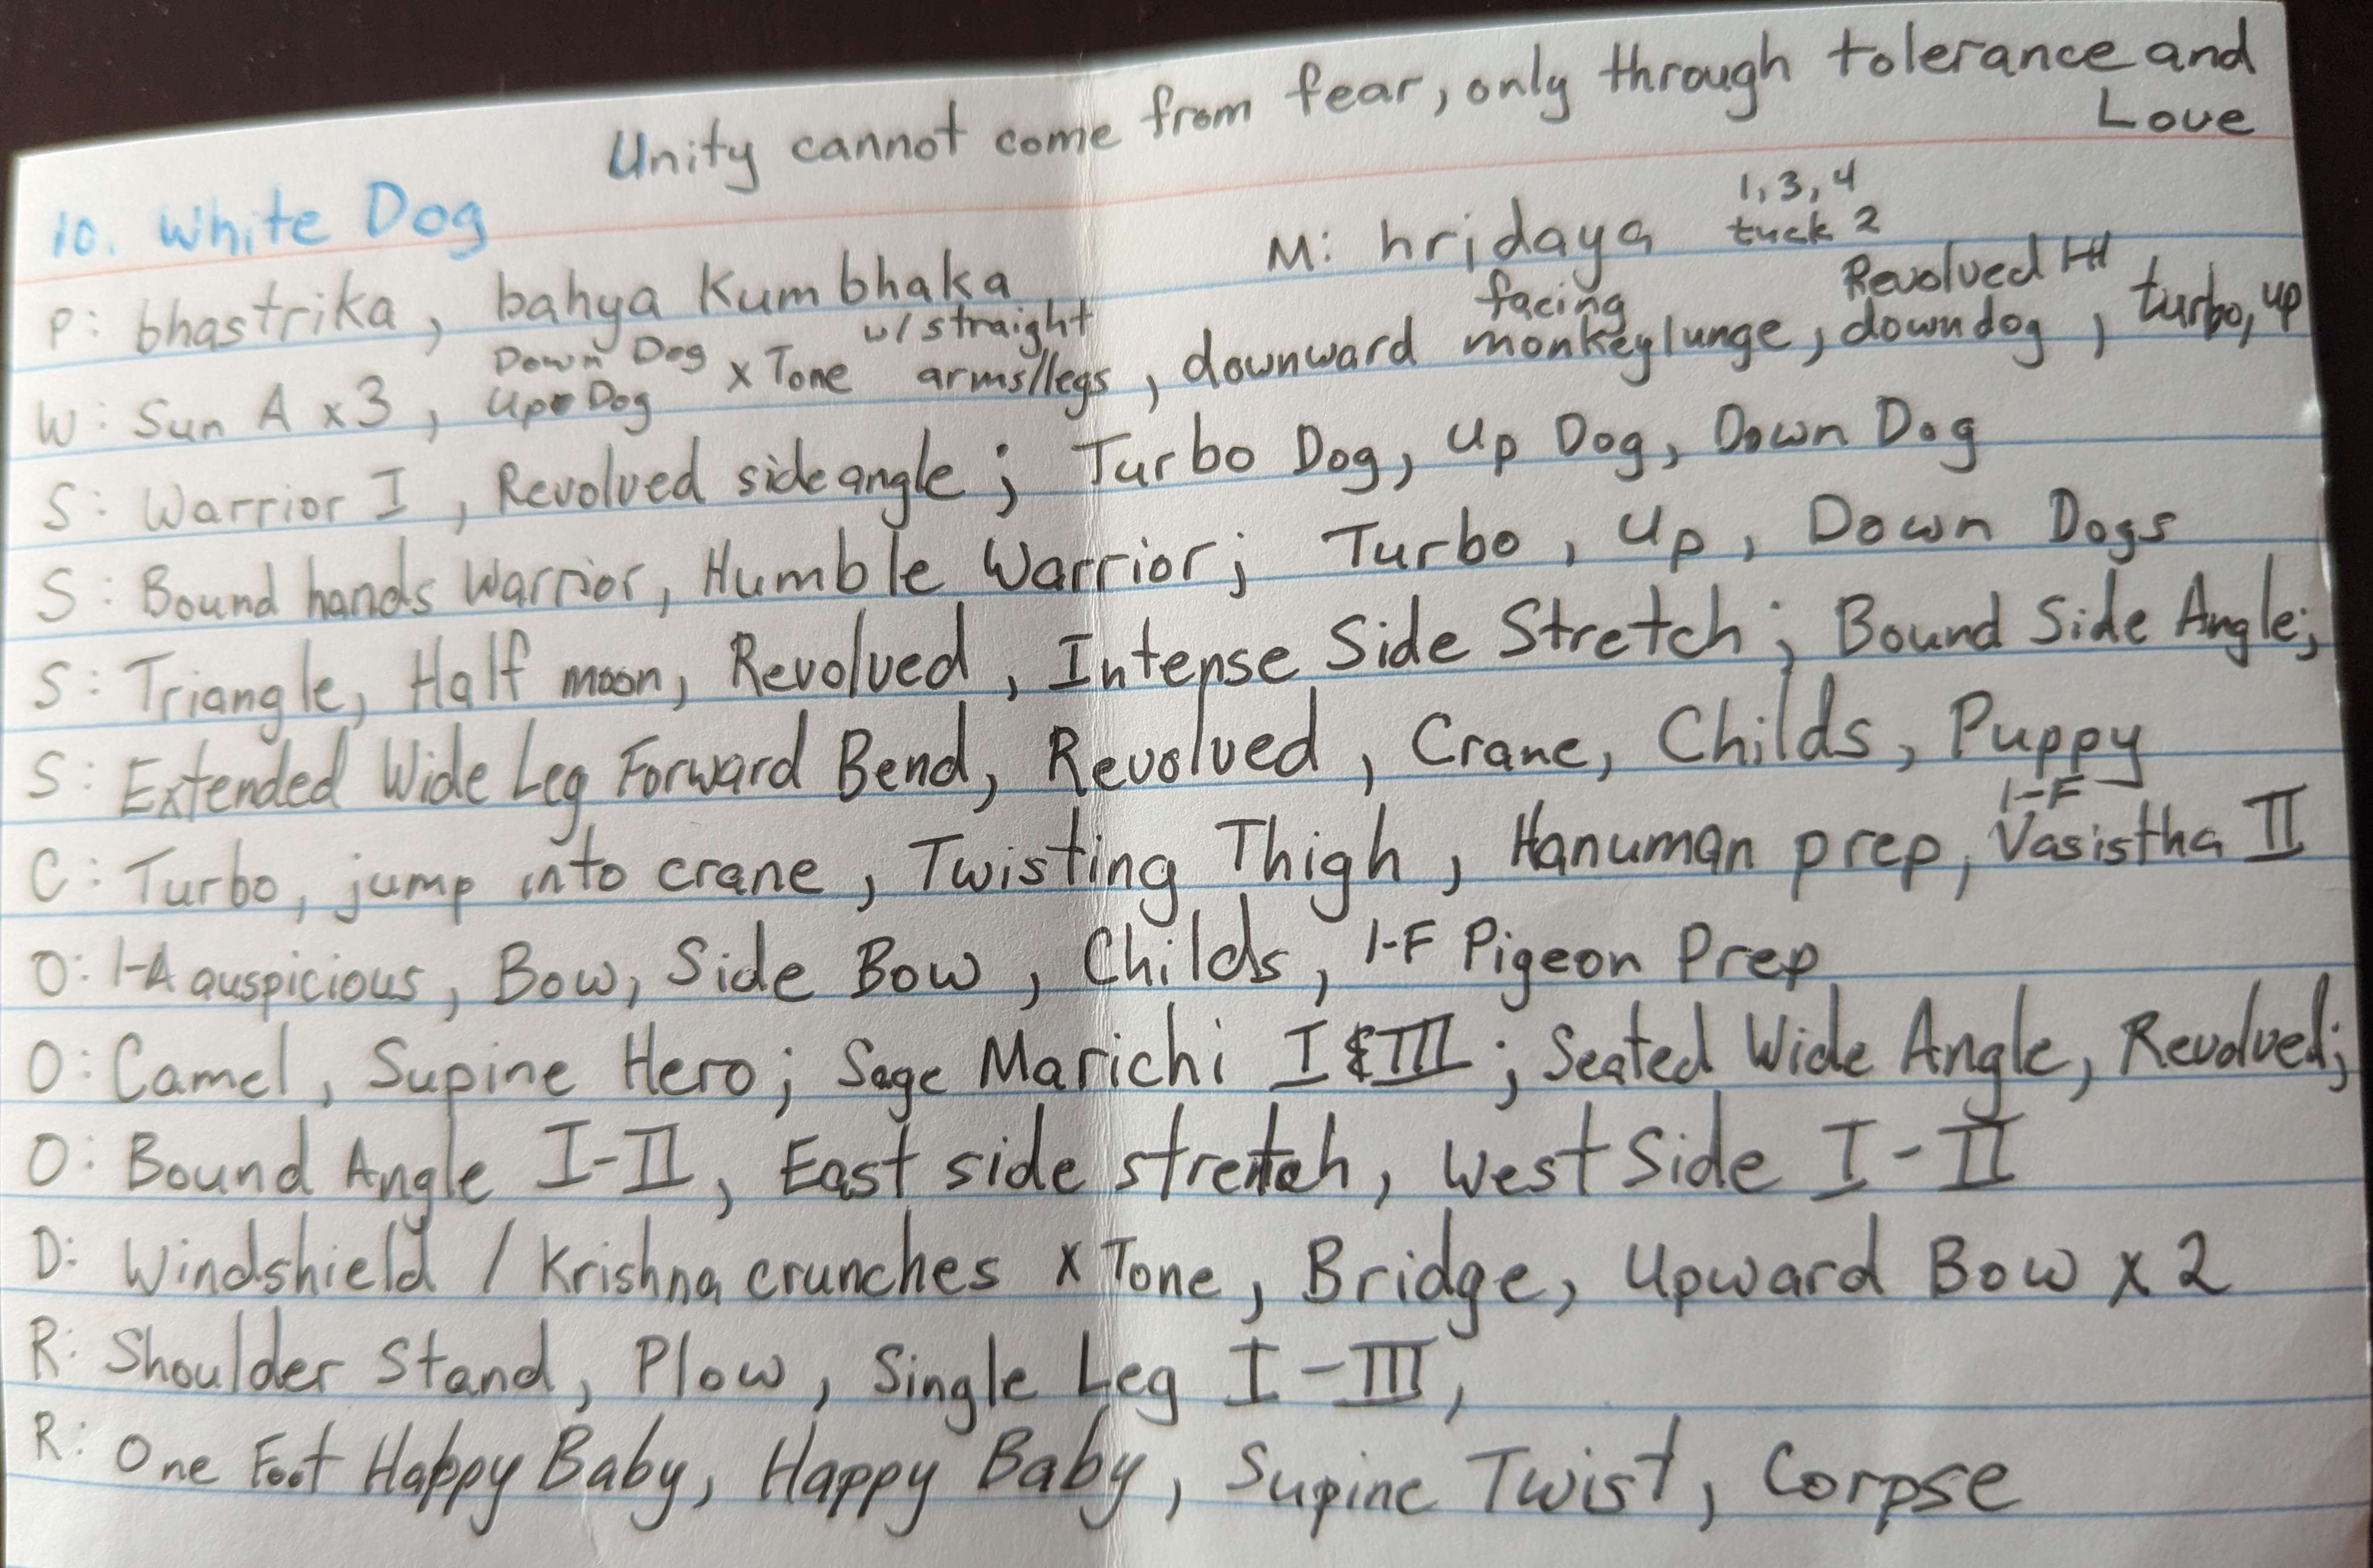 Unity cannot come from fear, only through tolerance and
Love
10. White Dog
P: bhastrika, bahya Kumbhaka M: hridaya 1, 3, 4
tuck 2
W: Sun A x3, Down Dog
Up Dog x Tone w/ straight
arms/legs, downward facing
monkey lunge, Revolved
down dog, turbo, up
S: Warrior I, Revolved side angle; Turbo Dog, Up Dog, Down Dog
S: Bound hands Warrior, Humble Warrior; Turbo, Up, Down Dogs
S: Triangle, Half moon, Revolved, Intense Side Stretch; Bound Side Angle;
S: Extended Wide Leg Forward Bend, Revolved, Crane, Childs, Puppy
C: Turbo, jump into crane, Twisting Thigh, Hanuman prep, 1-F
Vasistha II
O: 1-A auspicious, Bow, Side Bow, Childs, 1-F Pigeon Prep
O: Camel, Supine Hero; Sage Marichi I & III; Seated Wide Angle, Revolved;
O: Bound Angle I-II, East side stretch, West Side I-II
D: Windshield / Krishna crunches x Tone, Bridge, Upward Bow x 2
R: Shoulder Stand, Plow, Single Leg I-III,
R: One Foot Happy Baby, Happy Baby, Supine Twist, Corpse